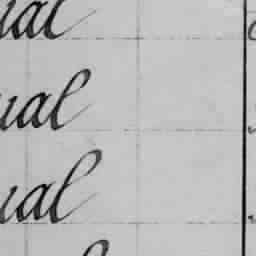 ual
ual
ual